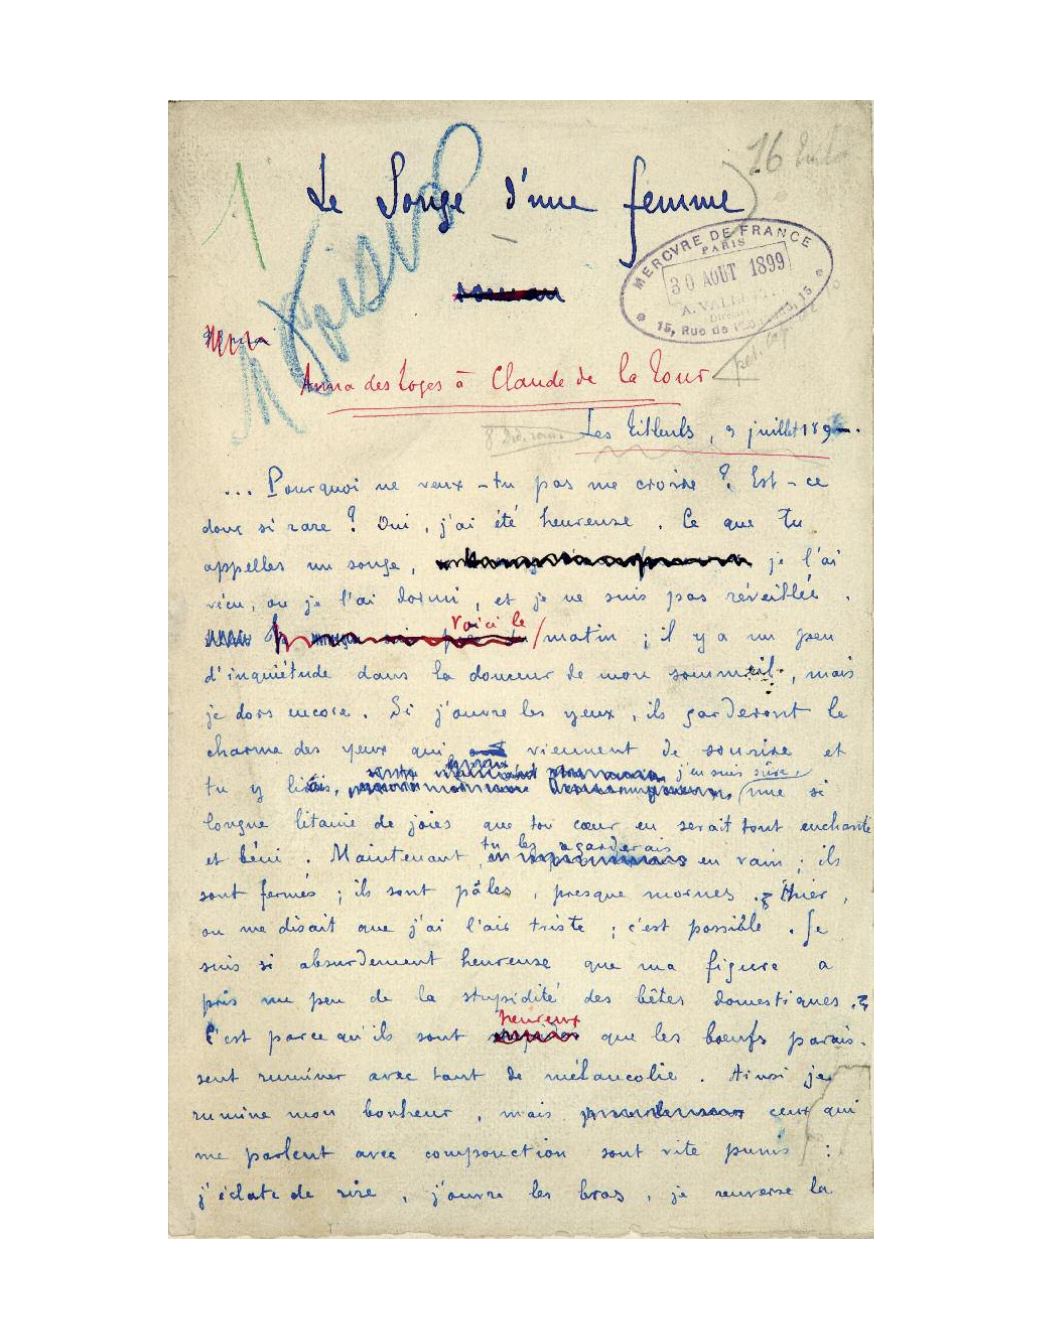 1
16
Le Songe d'une femme
MERCVRE DE FRANCE
PARIS
30 AOUT 1899
15, Rue de
15
roman
Anna des Loges à Claude de la Tour
Les Tilleuls, 3 juillet 189-.
... Pourquoi ne veux-tu pas me croire ? Est-ce
donc si rare ? Oui, j'ai été heureuse. Ce que tu
appelles un songe, je l'ai
vécu, ou je l'ai dormi, et je ne suis pas réveillée.
voici le
matin ; il y a un peu
d'inquiétude dans la douceur de mon sommeil, mais
je dors encore. Si j'ouvre les yeux, ils garderont le
charme des yeux qui viennent de sourire et
j'en suis sûre,
tu y lirais, une si
longue litanie de joies que ton cœur en serait tout enchanté
tu les regarderais
et béni. Maintenant, en vain ; ils
sont fermés ; ils sont pâles, presque mornes. Hier,
on me disait que j'ai l'air triste ; c'est possible. Je
suis si absurdement heureuse que ma figure a
pris un peu de la stupidité des bêtes domestiques.
heureux
C'est parce qu'ils sont que les bœufs parais-
sent ruminer avec tant de mélancolie. Ainsi je
rumine mon bonheur, mais ceux qui
me parlent avec componction sont vite punis :
j'éclate de rire, j'ouvre les bras, je renverse la